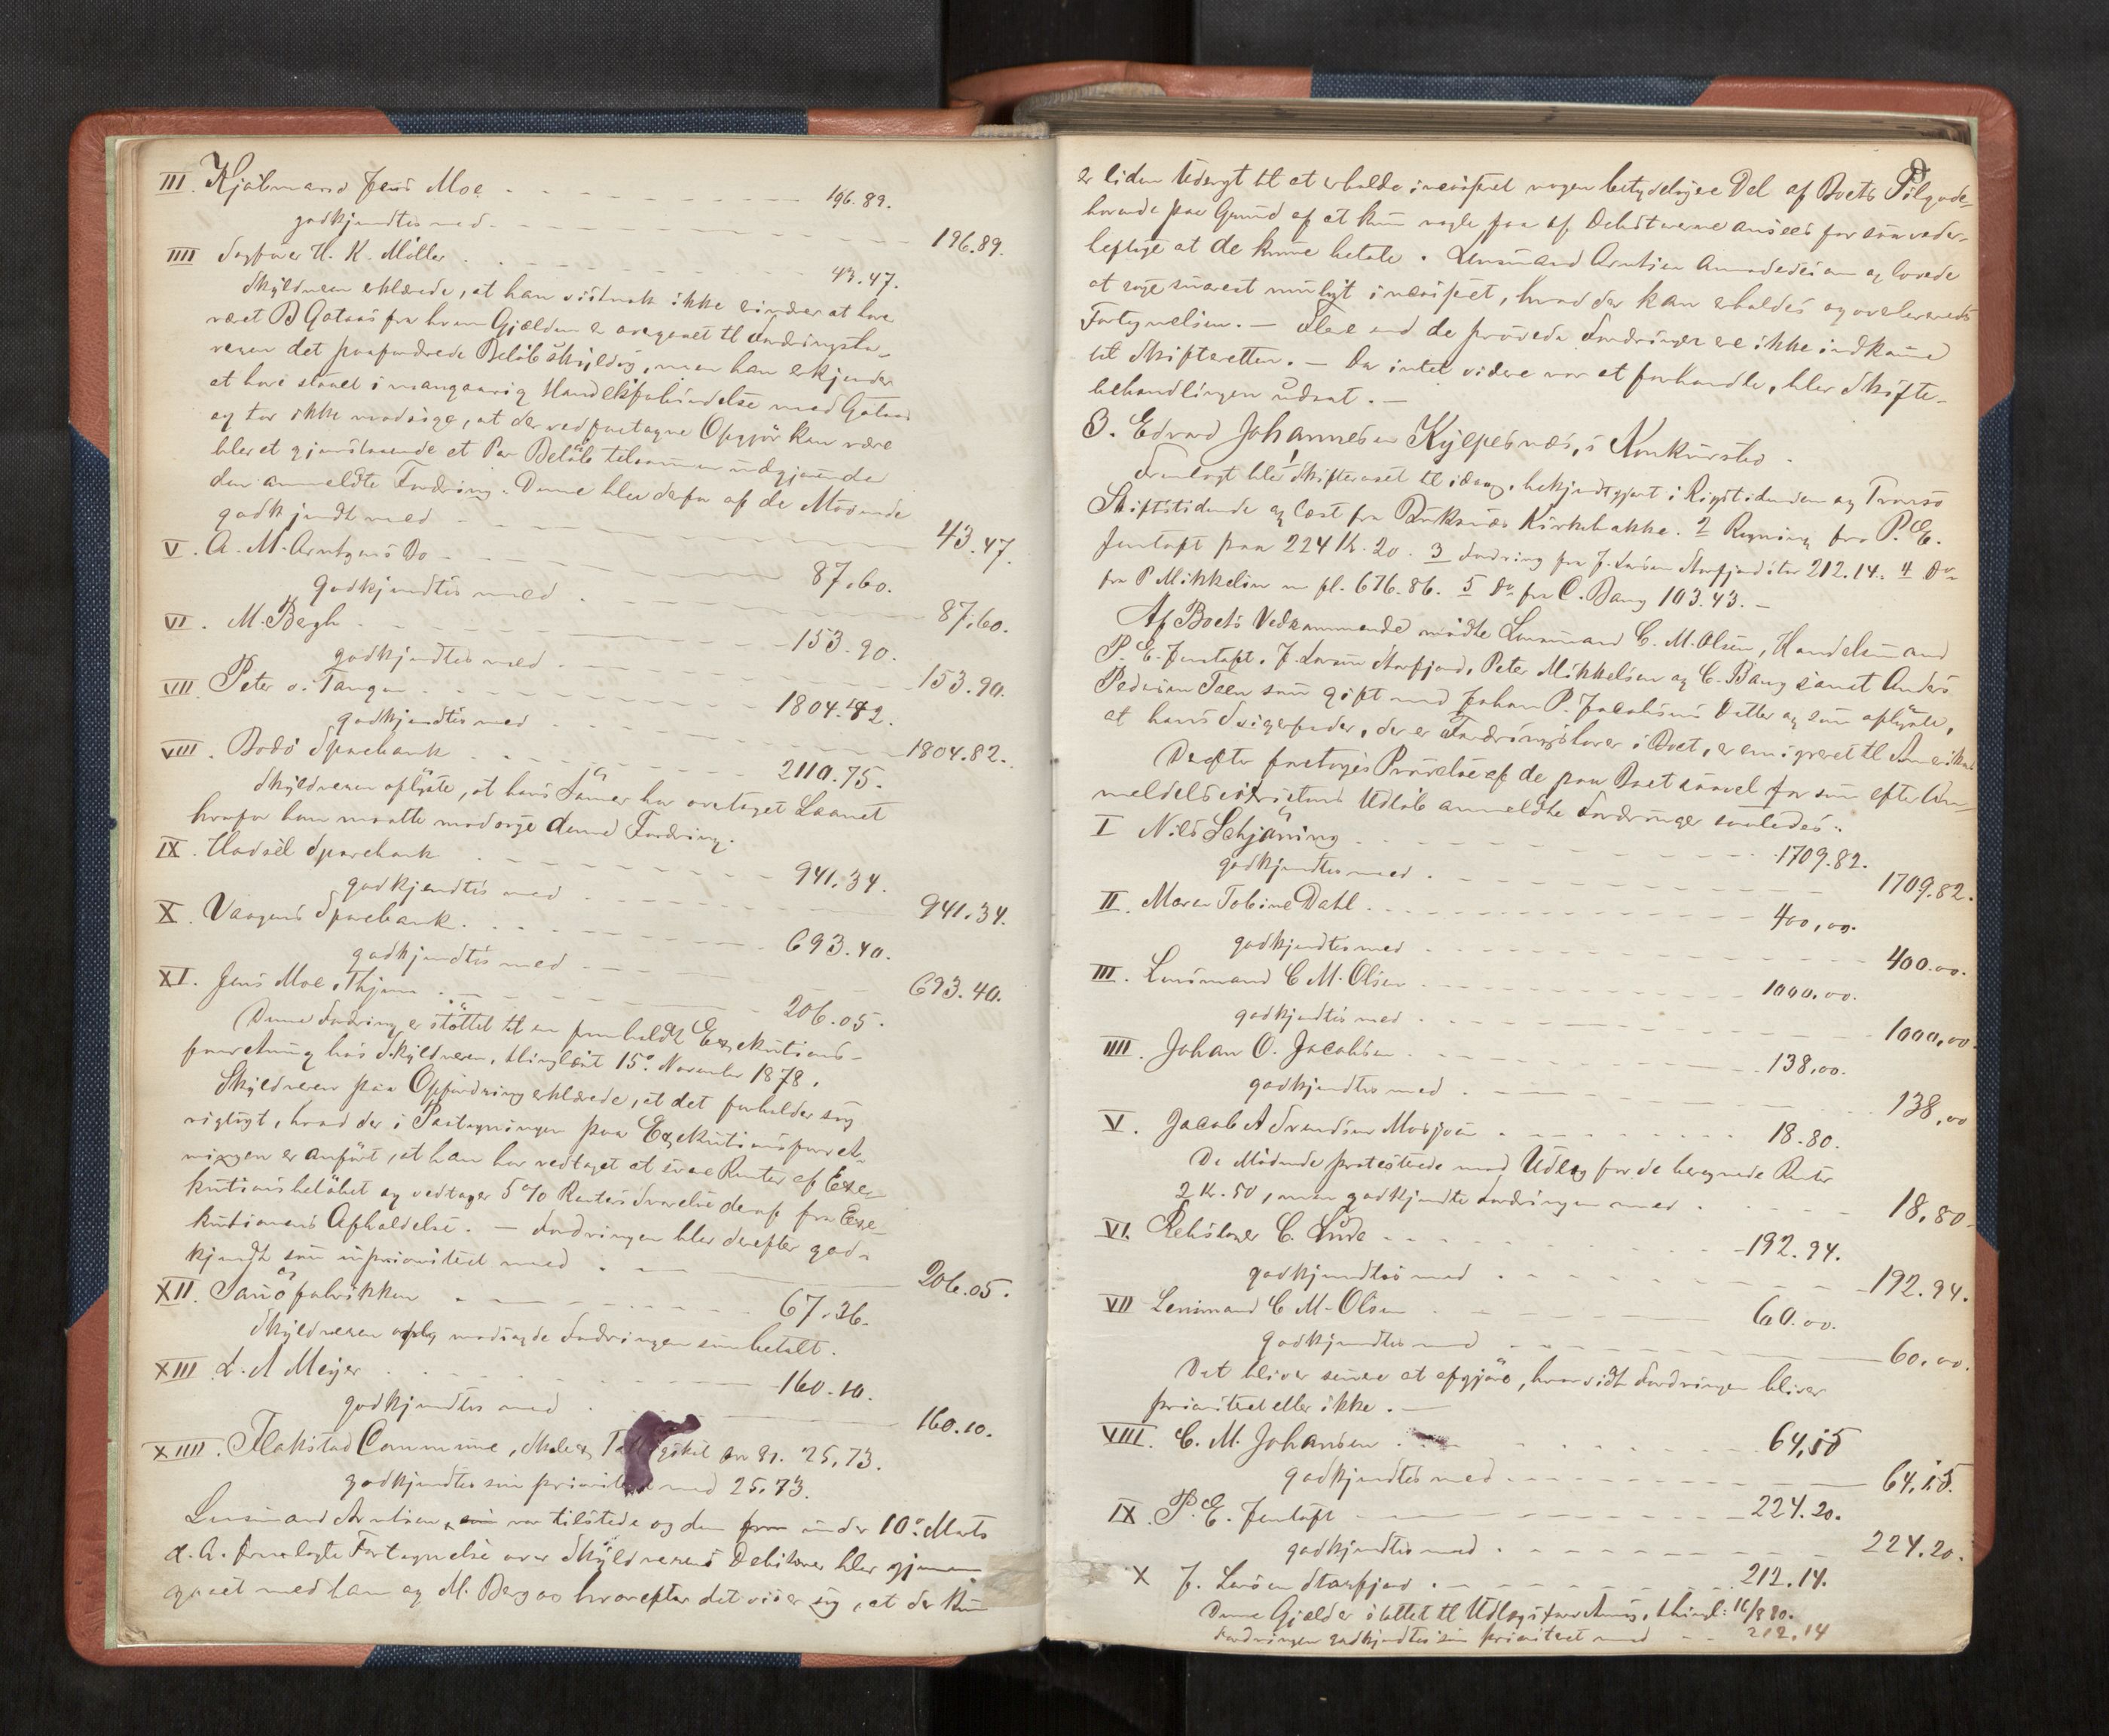 III. Kjøbmand Jens Moe 196.89.
godkjendtes med 196.89.
IIII Sagfører H. K. Møller 43.47.
Skyldneren erklærede, at han vistnok ikke erindrer at have
været B Gataas fra hvem Gjælden er overgaaet til Fordringsha-
veren det paafordrede Beløb skyldig, men han erkjender
at have staaet i mangaarig Handelsforbindelse med Gataas
og tør ikke modsige, at der ved foretagne Opgjør kan være
blevet gjenstaaende et Par Beløb tilsammen udgjørende
den anmeldte Fordring. Denne blev derfor af de Mødende
godkjendt med 43.47.
V. A. M. Arntzens Bo 87.60.
godkjendtes med 87.60.
VI. M. Bergh 153.90.
godkjendtes med 153.90.
VII. Peter v. Tangen 1804.82.
godkjendtes med 1804.82.
VIII. Bodø Sparebank 2110.75.
Skyldneren oplyste, at hans Sønner har overtaget Laanet
hvorfor han maatte modsige denne Fordring.
IX. Hadsel Sparebank 941.34.
godkjendtes med 941.34.
X. Vaagens Sparebank. 693.40.
godkjendtes med 693.40.
XI. Jens Moe, 206.05.
Denne Fordring er støttet til en fremholdt Exekutions-
forretning hos Skyldneren, thinglæst 15de November 1878.
Skyldneren paa Opfordring erklærede, at det forholder sig
rigtigt, hvad der i Paategningen paa Exekutionsforret-
ningen er anført, at han har vedtaget at svare Renter af Exe-
kutionsbeløbet og vedtager 5 % Renters Svarelse deraf fra Exe-
kutionens Afholdelse. — Fordringen blev derefter god-
kjendt som uprioriteret med 206.05.
XII. Sandøfabrikken 67.26.
Skyldneren modsagde Fordringen som betalt.
XIII L. A Meyer 160.10.
godkjendtes med 160.10.
XIIII. Flakstad Commune, Skole 25,73.
godkjendtes som prioriteret med 25.73.
Lensmand Arntsen, var tilstede og den under 10de Marts
d. A. fremlagte Fortegnelse over Skyldnerens Debitorer blev gjennem-
gaaet med ham og M. Berg hvorefter det viser sig, at der kun
8
er liden Udsigt til at erholde incasseret nogen betydeligere Del af Boets Tilgode-
havende paa Grund af at kun nogle faa af Debitorerne ansees for saa veder-
heftige at de kunne betale. Lensmand Arntsen anmodedes om og lovede
at søge snarest muligt incasseret, hvad der kan erholdes og overleveredes
Fortegnelsen. — Flere end de prøvede Fordringer ere ikke indkomne
til Skifteretten. — Da intet videre var at forhandle, blev Skifte-
behandlingen udsat. —
3. Edvard Johannesen Kylpesnæs, s Konkursbo.
Fremlagt blev 1 Skifteraset til idag, bekjendtgjort i Rigstidenden og Tromsø
Stiftstidende og læst fra Buksnæs Kirkebakke. 2 Regning fra P. E.
Jentoft paa 224 Kr. 20. 3 Fordring fra J. Larsen Storfjord stor 212.14. 4 Do
fra P Mikkelsen m fl. 676.86. 5 Do fra C. Bang 103.43. —
Af Boets Vedkommende mødte Lensmand C. M. Olsen, Handelsmand
P. E. Jentoft, J. Larsen Storfjord, Peter Mikkelsen og C. Bang samt Anders
Pedersen Teen som gift med Johan P. Jacobsens Datter og som oplyste,
at hans Svigerfader, der er Fordringshaver i Boet, er emigreret til Amerika.
Derefter foretoges Prøvelse af de paa Boet saavel før som efter An-
meldelsesfristens Udløb anmeldte Fordringer saaledes:
I Nils Schjøning 1709.82.
godkjendtes med 1709.82.
II. Maren Tobine Dahl 400,00.
godkjendtes med 400.00.
III. Lensmand C M. Olsen 1000.00.
godkjendtes med 1000,00.
IIII. Johan O. Jacobsen 138,00.
godkjendtes med 138,00
V. Jacob A Svendsen Mosjøen 18.80.
De Mødende protesterede mod Udlæg for de beregnede Renter
2 Kr. 50, men godkjendte Fordringen med 18,80.
VI. Rebslager C. Lude 192.94.
godkjendtes med 192.94.
VII Lensmand C M. Olsen 60.00.
godkjendtes med 60.00.
Det bliver senere at afgjøre, hvorvidt Fordringen bliver
prioriteret eller ikke. —
VIII. C. M. Johansen 64,15
godkjendtes med 64,15.
IX. P. E. Jentoft 224.20.
godkjendtes med 224.20.
X J. Larsen Storfjord 212.14.
Denne Gjæld er støttet til Udlægsforretning, thingl: 16/8 80.
Fordringen godkjendtes som prioriteret med 212.14